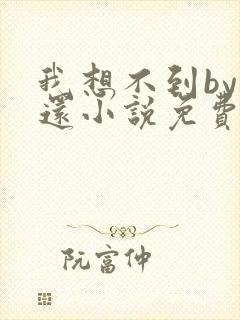 我想不到by
还小說免費
阮富仲